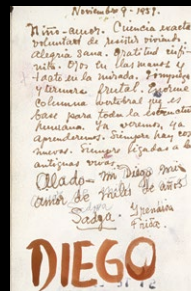 Noviembre 9 - 1939.
Niño-amor. Ciencia exacta
voluntad de resistir viviendo,
alegría sana. Gratitud infi-
nita. Ojos en las manos y
tacto en la mirada. Limpieza
y ternura frutal. Enorme
columna vertebral que es
base para toda la estructura
humana. Ya veremos, ya
aprenderemos. Siempre hay cosas
nuevas. Siempre ligadas a las
antiguas vivas.
Alado - mi Diego mi
amor de miles de años
Sadga. Yrenaica
Frida.
DIEGO